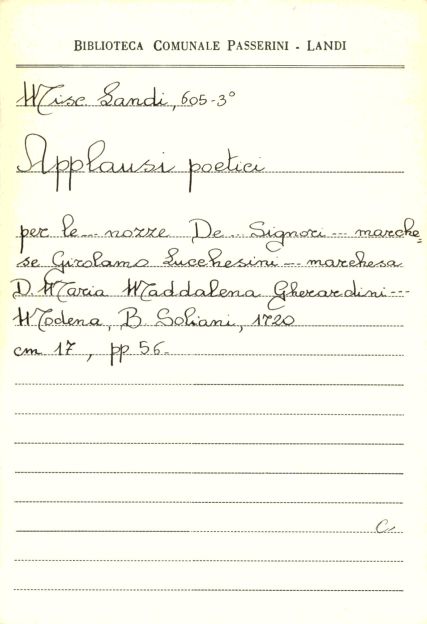 BIBLIOTECA COMUNALE PASSERINI - LANDI
Misc. Landi, 605-3°
Applausi poetici
per le --- nozze De.. Signori --- marche=
se Girolamo Lucchesini --- marchesa
D. Maria Maddalena Gherardini ---
Modena, B. Soliani, 1720
cm 17, pp 56.
C